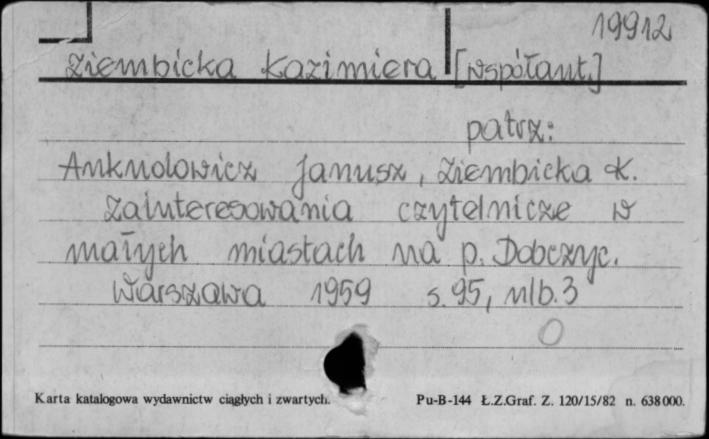 19912
Ziembicka Kazimiera [współaut.]
patrz:
Ankudowicz Janusz, Ziembicka K.
Zainteresowania czytelnicze w
małych miastach na p. Dobczyc.
Warszawa 1959 s. 95, nlb. 3
O
Karta katalogowa wydawnictw ciągłych i zwartych.
Pu-B-144 Ł.Z.Graf. Z. 120/15/82 n. 638000.